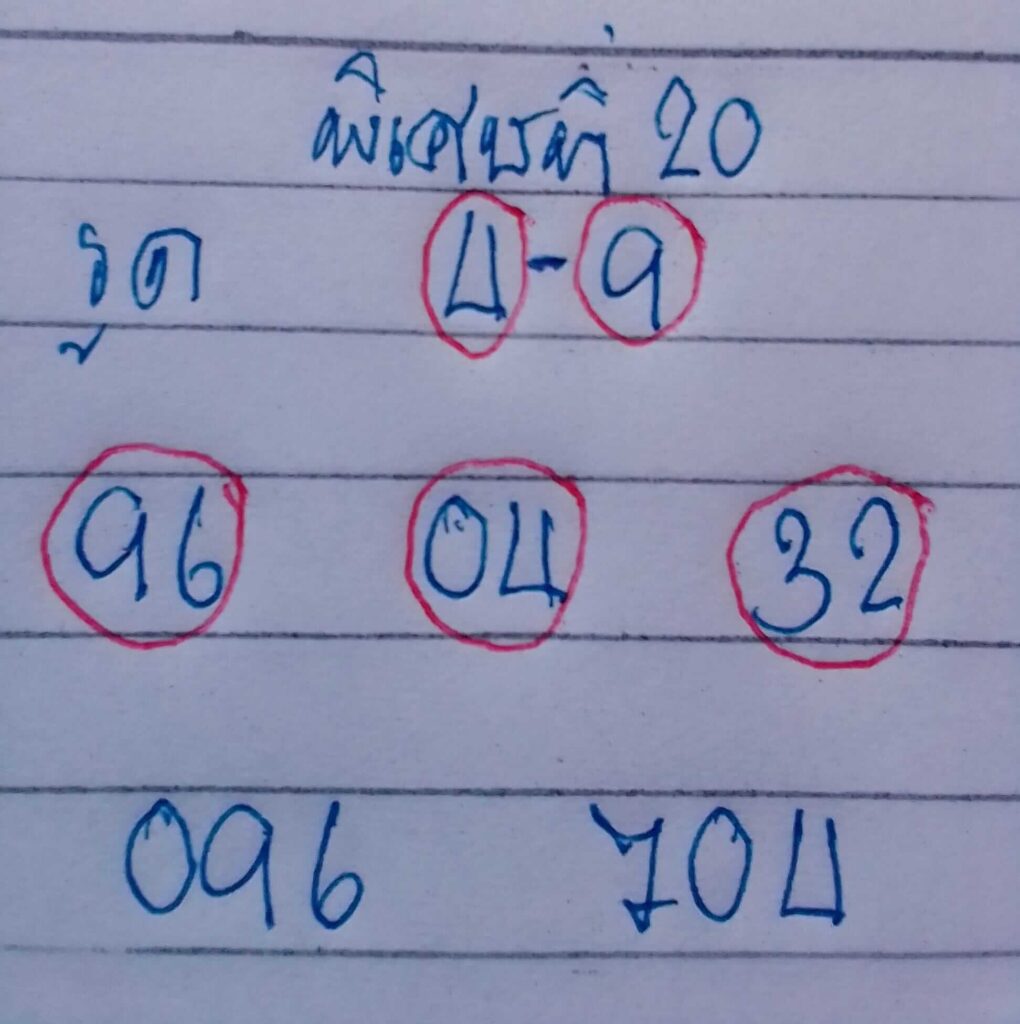 พิเศษที่ 20
รูด 4-9
96 04 32
096 704